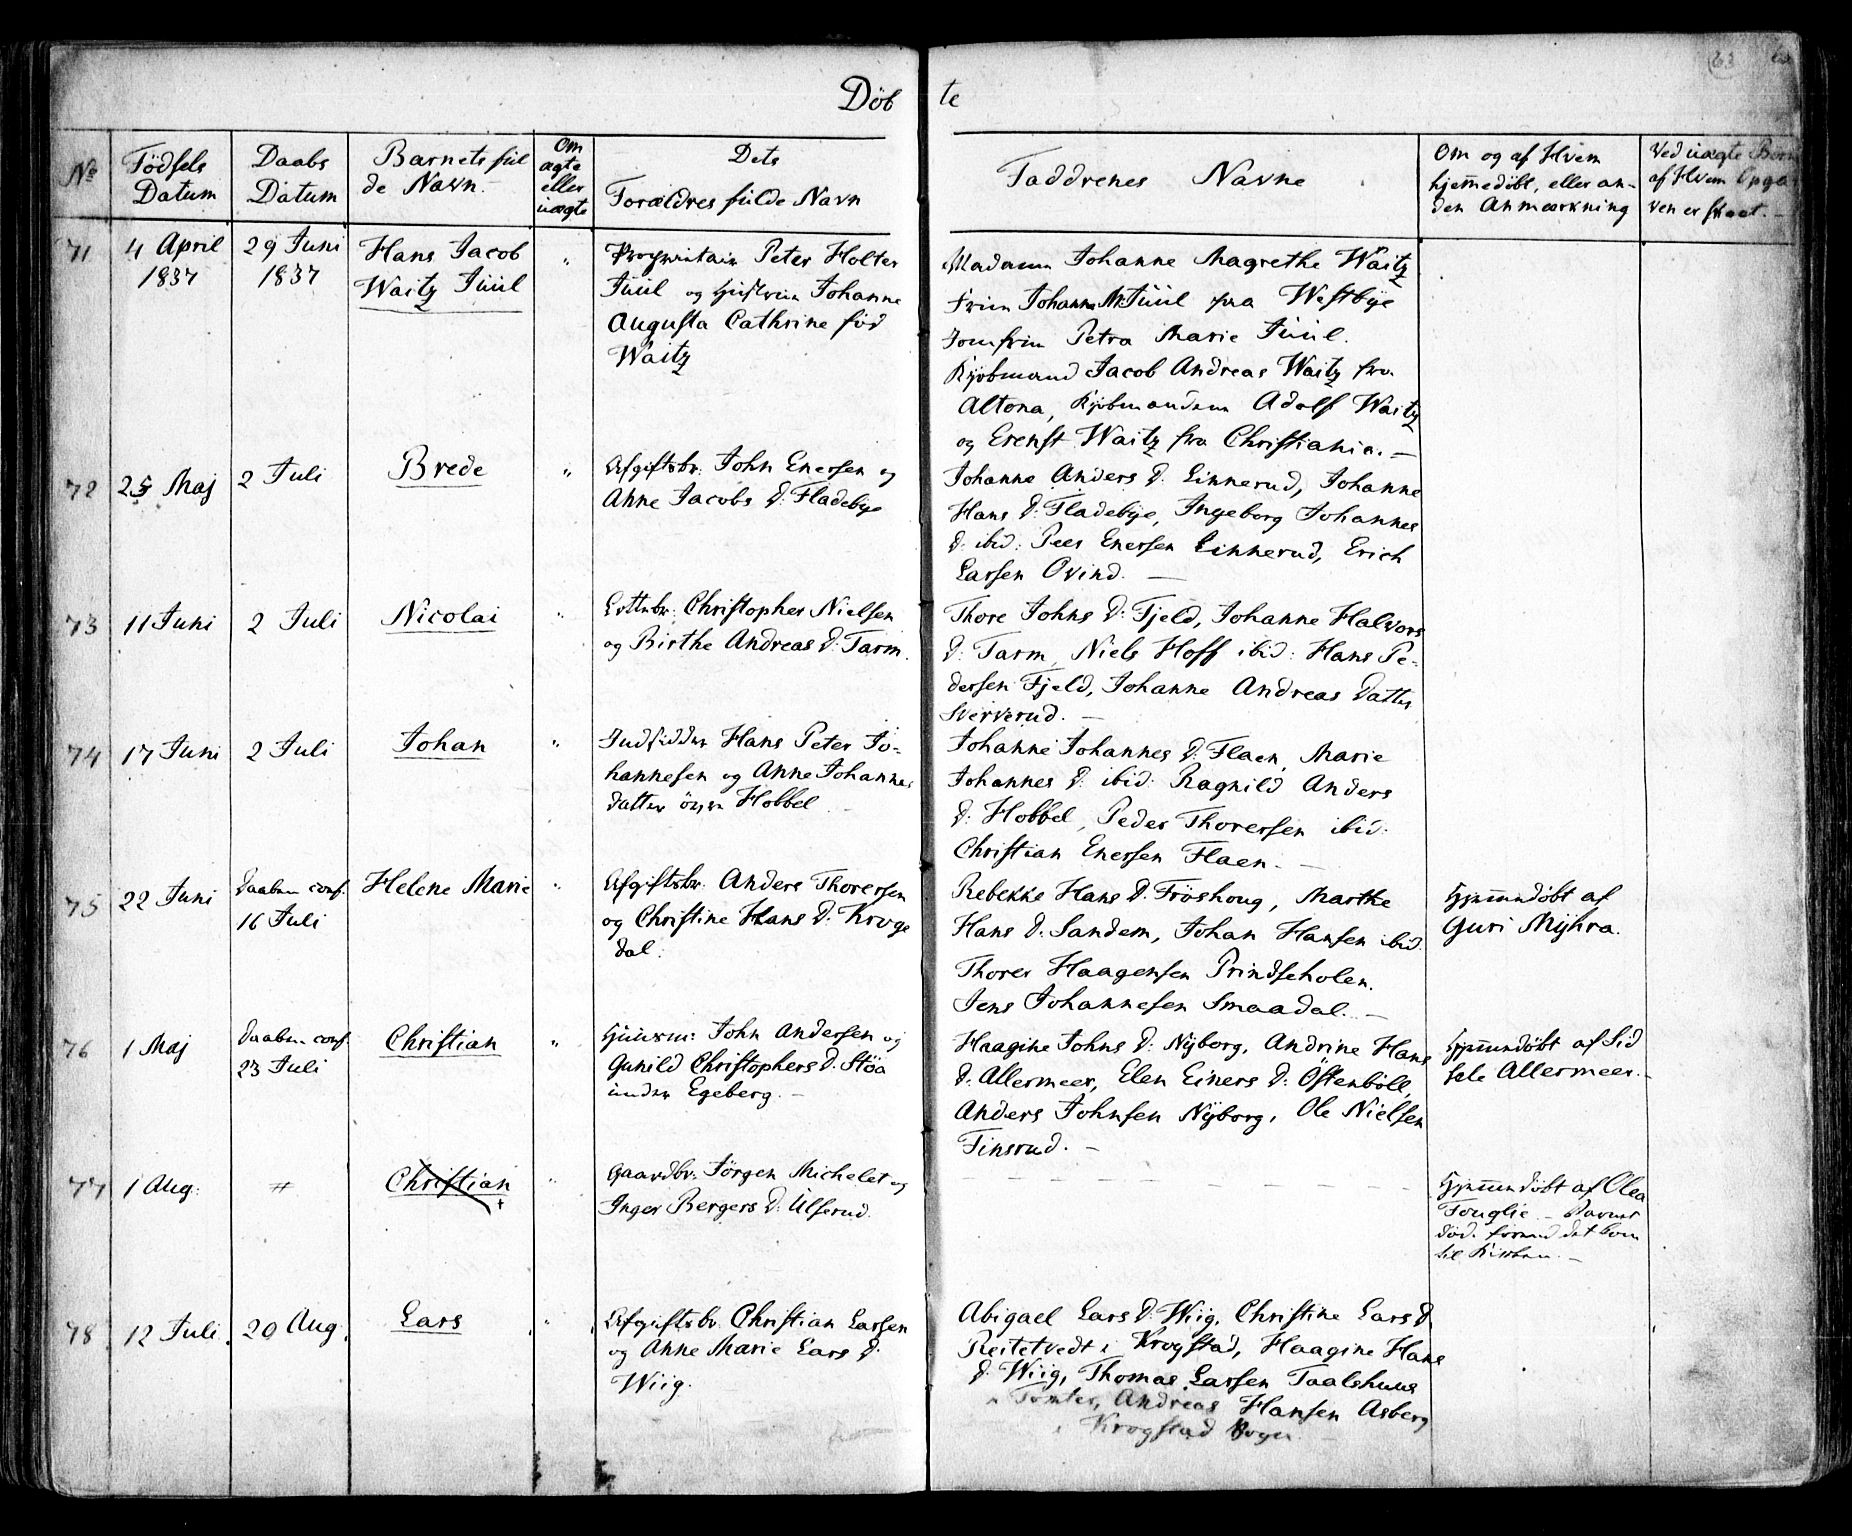 63
Döbte
No
Födsels Datum
Daabs Datum
Barnets fulde Navn.
Om ægte eller uægte
Dets Forældres fulde Navn
Faddrenes Navne
Om og af Hvem hjemedöbt, eller anden Anmærkning
Ved uægte Börn af Hvem Opgaven er skeet.
71
4 April 1837
29 Juni 1837
Hans Jacob
Waitz Juul
"
Proprietair Peter Holter
Juul og Hustrue Johanne
Augusta Cathrine föd
Waitz
Madame Johanne Magrethe Waitz
Frue Johanne M. Juul fra Westbÿe
Jomfrue Petra Marie Juul.
Kjöbmand Jacob Andreas Waitz fra
Altona, Kjöbmændene Adolf Waitz
og Erenst Waitz fra Christiania. —
72
25 Maj
2 Juli
Brede
"
Afgiftsbr: John Enersen og
Anne Jacobs D: Fladebye
Johanne Anders D. Linnerud, Johanne
Hans D: Fladebÿe, Ingeborg Johannes
D: ibid: Peer Enersen Linnerud, Erich
Larsen Ovind. —
73
11 Juni
2 Juli
Nicolai
"
Christopher Nielsen
og Birthe Andreas D: Tarm.
Thore Johns D: Fjeld, Johanne Halvors
D: Tarm, Niels Hoff ibid: Hans Pe-
dersen Fjeld, Johanne Andreas Datter
Sververud. —
74
17 Juni
2 Juli
Johan
"
Indsidder Hans Peter Jo-
hannesen og Anne Johannes
datter Hobbel —
Johanne Johannes D: Flaen, Marie
Johannes D: ibid: Ragnild Anders
D: Hobbel, Peder Thoresen ibid:
Christian Enersen Flaen. —
75
22 Juni
Daaben conf.
16 Juli
Helene Marie
"
Afgiftsbr: Anders Thorersen
og Christine Hans D: Kroge
dal.
Rebekke Hans D: Fröshoug, Marthe
Hans D. Sandem, Johan Hansen ibid
Thores Haagensen Prindseholen.
Jens Johannesen Smaadal. —
Hjemmedöbt af
Guri Mÿhra.
76
1 Maj
Daaben conf.
23 Juli
Christian
"
Huusm: John Andersen og
Gunild Christophers D: Stöa
under Egeberg. —
Haagine Johns D: Nÿborg, Andrine Hans
D: Allermeer, Elen Einers D: Östenböll,
Anders Johnsen Nÿborg, Ole Nielsen
Finsrud. —
Hjemmedöbt af Sid
sele Allermeer. —
77
1 Aug:
"
Christian
+
"
Gaardbr: Jörgen Michelet og
Inger Bergers D: Ulserud
Hjemmedöbt af Olea
Fouglie. — Barnet
död. forend det kom
til Kirken. —
78
12 Juli.
20 Aug.
Lars
"
Afgiftsbr: Christian Larsen
og Anne Marie Lars D.
Wiig.
Abigael Lars D: Wiig, Christine Lars D
Reitetvedt i Krogstad, Haagine Hans
D: Wiig, Thomas Larsen Taalshuus
i Tomter, Andreas Hansen Asberg
i Krogstad Sogn.